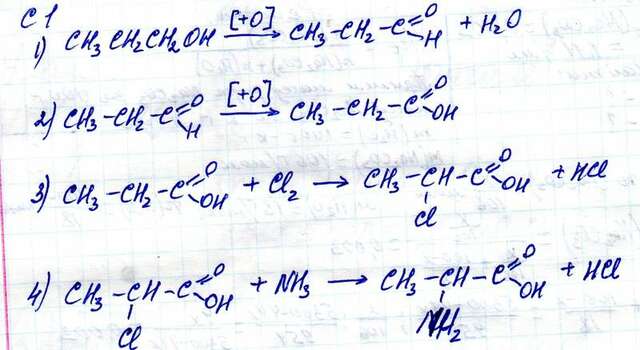 C1
1) CH3 CH2 CH2 OH [+O] → CH3-CH2-C=O H + H2O
2) CH3-CH2-C=O H [+O] → CH3-CH2-C=O OH
3) CH3-CH2-C=O OH + Cl2 → CH3-CH-C=O OH + HCl
Cl
4) CH3-CH-C=O OH + NH3 → CH3-CH-C=O OH + HCl
Cl NH2